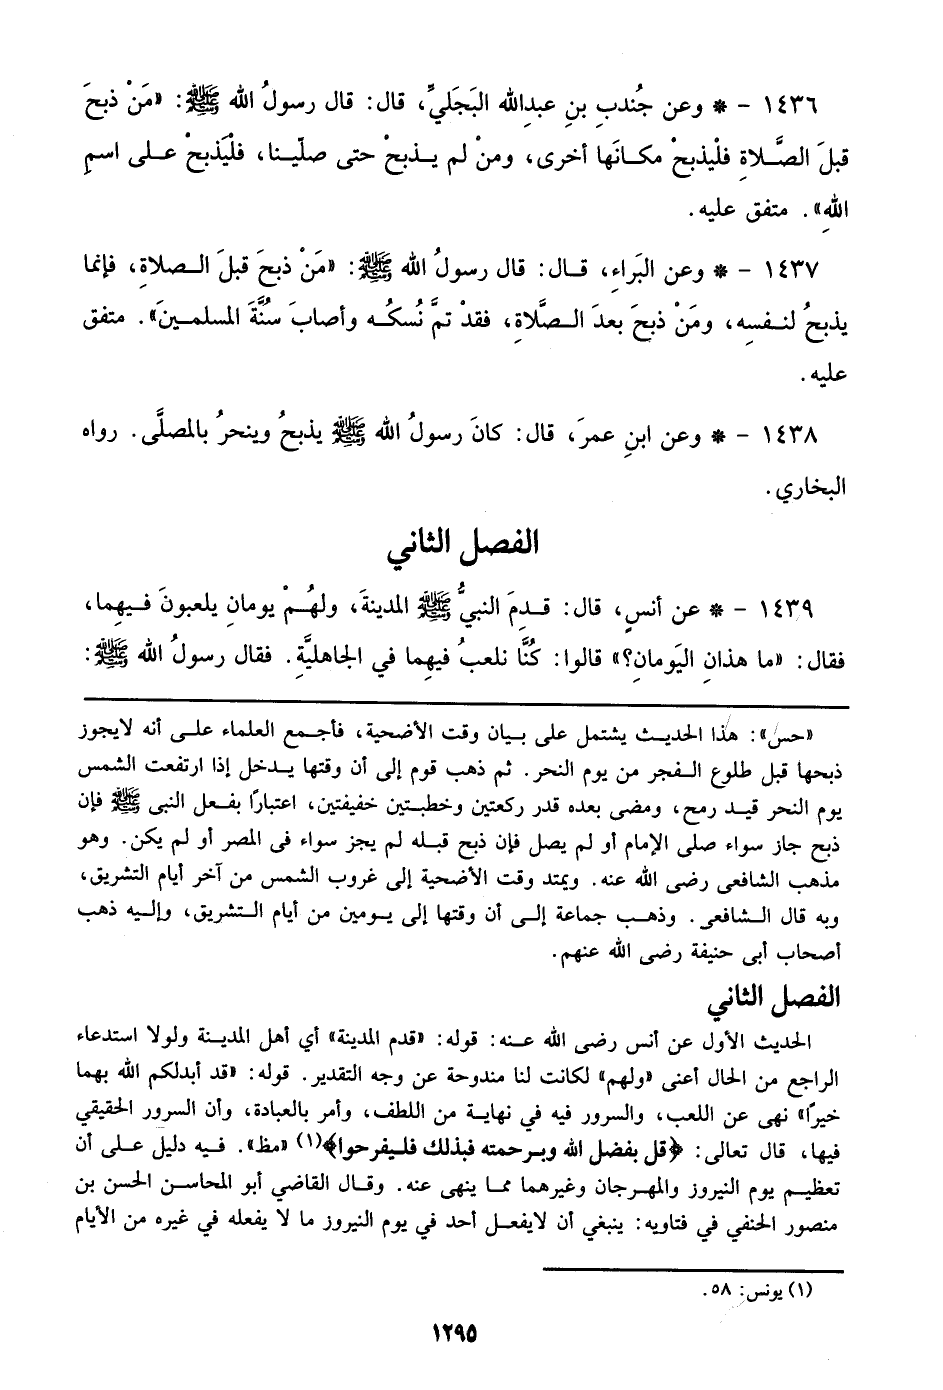 ١٤٣٦ - * وعن جُندبِ بنِ عبدِالله البَجَليِّ، قال: قال رسولُ الله ﷺ: «مَنْ ذبحَ
قبلَ الصَّلاةِ فلْيذبحْ مكانَها أخرى، ومنْ لم يذبحْ حتى صلّينا، فلْيَذبحْ على اسمِ
اللهِ». متفق عليه.
١٤٣٧ - * وعن البَراءِ، قال: قال رسولُ الله ﷺ: «مَنْ ذبحَ قبلَ الصلاةِ، فإنما
يذبحُ لنفسِه، ومَنْ ذبحَ بعدَ الصَّلاةِ، فقدْ تمَّ نُسكُه وأصابَ سُنَّةَ المسلمينَ». متفق
عليه.
١٤٣٨ - * وعن ابنِ عمرَ، قال: كانَ رسولُ الله ﷺ يذبحُ وينحرُ بالمصلَّى. رواه
البخاري.
الفصل الثاني
١٤٣٩ - * عن أنسٍ، قال: قدِمَ النبيُّ ﷺ المدينةَ، ولهُمْ يومانِ يلعبونَ فيهما،
فقال: «ما هذانِ اليَومانِ؟» قالوا: كُنَّا نلعبُ فيهِما في الجاهليَّةِ. فقال رسولُ الله ﷺ:
«حس»: هذا الحديث يشتمل على بيان وقت الأضحية، فأجمع العلماء على أنه لايجوز
ذبحها قبل طلوع الفجر من يوم النحر. ثم ذهب قوم إلى أن وقتها يدخل إذا ارتفعت الشمس
يوم النحر قيد رمح، ومضى بعده قدر ركعتين وخطبتين خفيفتين، اعتبارًا بفعل النبى ﷺ فإن
ذبح جاز سواء صلى الإمام أو لم يصل فإن ذبح قبله لم يجز سواء فى المصر أو لم يكن. وهو
مذهب الشافعى رضى الله عنه. ويمتد وقت الأضحية إلى غروب الشمس من آخر أيام التشريق،
وبه قال الشافعى. وذهب جماعة إلى أن وقتها إلى يومين من أيام التشريق، وإليه ذهب
أصحاب أبى حنيفة رضى الله عنهم.
الفصل الثاني
الحديث الأول عن أنس رضى الله عنه: قوله: «قدم المدينة» أي أهل المدينة ولولا استدعاء
الراجع من الحال أعنى «ولهم» لكانت لنا مندوحة عن وجه التقدير. قوله: «قد أبدلكم الله بهما
خيرًا» نهى عن اللعب، والسرور فيه في نهاية من اللطف، وأمر بالعبادة، وأن السرور الحقيقي
فيها، قال تعالى: ﴿قل بفضل الله وبرحمته فبذلك فليفرحوا﴾(١) «مظ». فيه دليل على أن
تعظيم يوم النيروز والمهرجان وغيرهما مما ينهى عنه. وقال القاضي أبو المحاسن الحسن بن
منصور الحنفي في فتاويه: ينبغي أن لايفعل أحد في يوم النيروز ما لا يفعله في غيره من الأيام
(١) يونس: ٥٨.
١٢٩٥